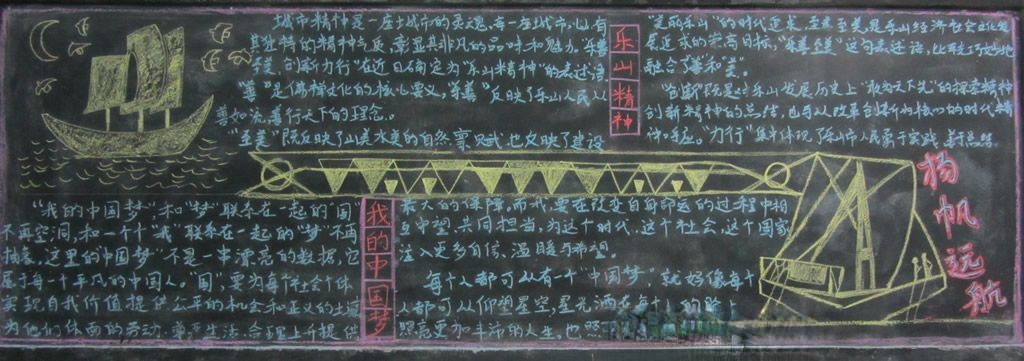 城市精神是一座城市的灵魂,每一座城市,都有
其独特的精神气质,彰显其非凡的品味和魅力。"乐善
至美,创新力行"在近日确定为"乐山精神"的表述语
"善"是佛禅文化的核心要义,"乐善"反映了乐山人民从
善如流,善行天下的理念。
"至美"既反映了山美水美的自然禀赋,也反映了建设
乐山精神
"美丽乐山"的时代追求,至善至美是乐山经济社会的发
展追求的崇高目标,"乐善至美"这句表述语,比较巧妙地
融合了善和美。
"创新"既是对乐山发展历史上"敢为天下先"的探索精神
创新精神的总结,也可以改革创新为核心的时代精
神呼应。"力行"集中体现了乐山市人民勇于实践,善于总结。
"我的中国梦"和"梦"联系在一起的"国"
不再空洞,和一个个"我"联系在一起的"梦"不再
抽象,这里的中国梦,不是一串漂亮的数据,它
属于每一个平凡的中国人。"国",要为每个社会个体
实现自我价值提供公平的机会和正义的土壤
为他们体面的劳动,尊严生活,合理上升提供
我的中国梦
最大的保障,而我,要在改变自身命运的过程中相
互守望,共同担当,为这个时代,这个社会,这个国家
注入更多自信、温暖与希望。
每个人都可以有一个"中国梦",就好像每个
人都可以仰望星空,星光洒在每个人的脸上
照亮更加丰沛的人生,也照
杨帆远航